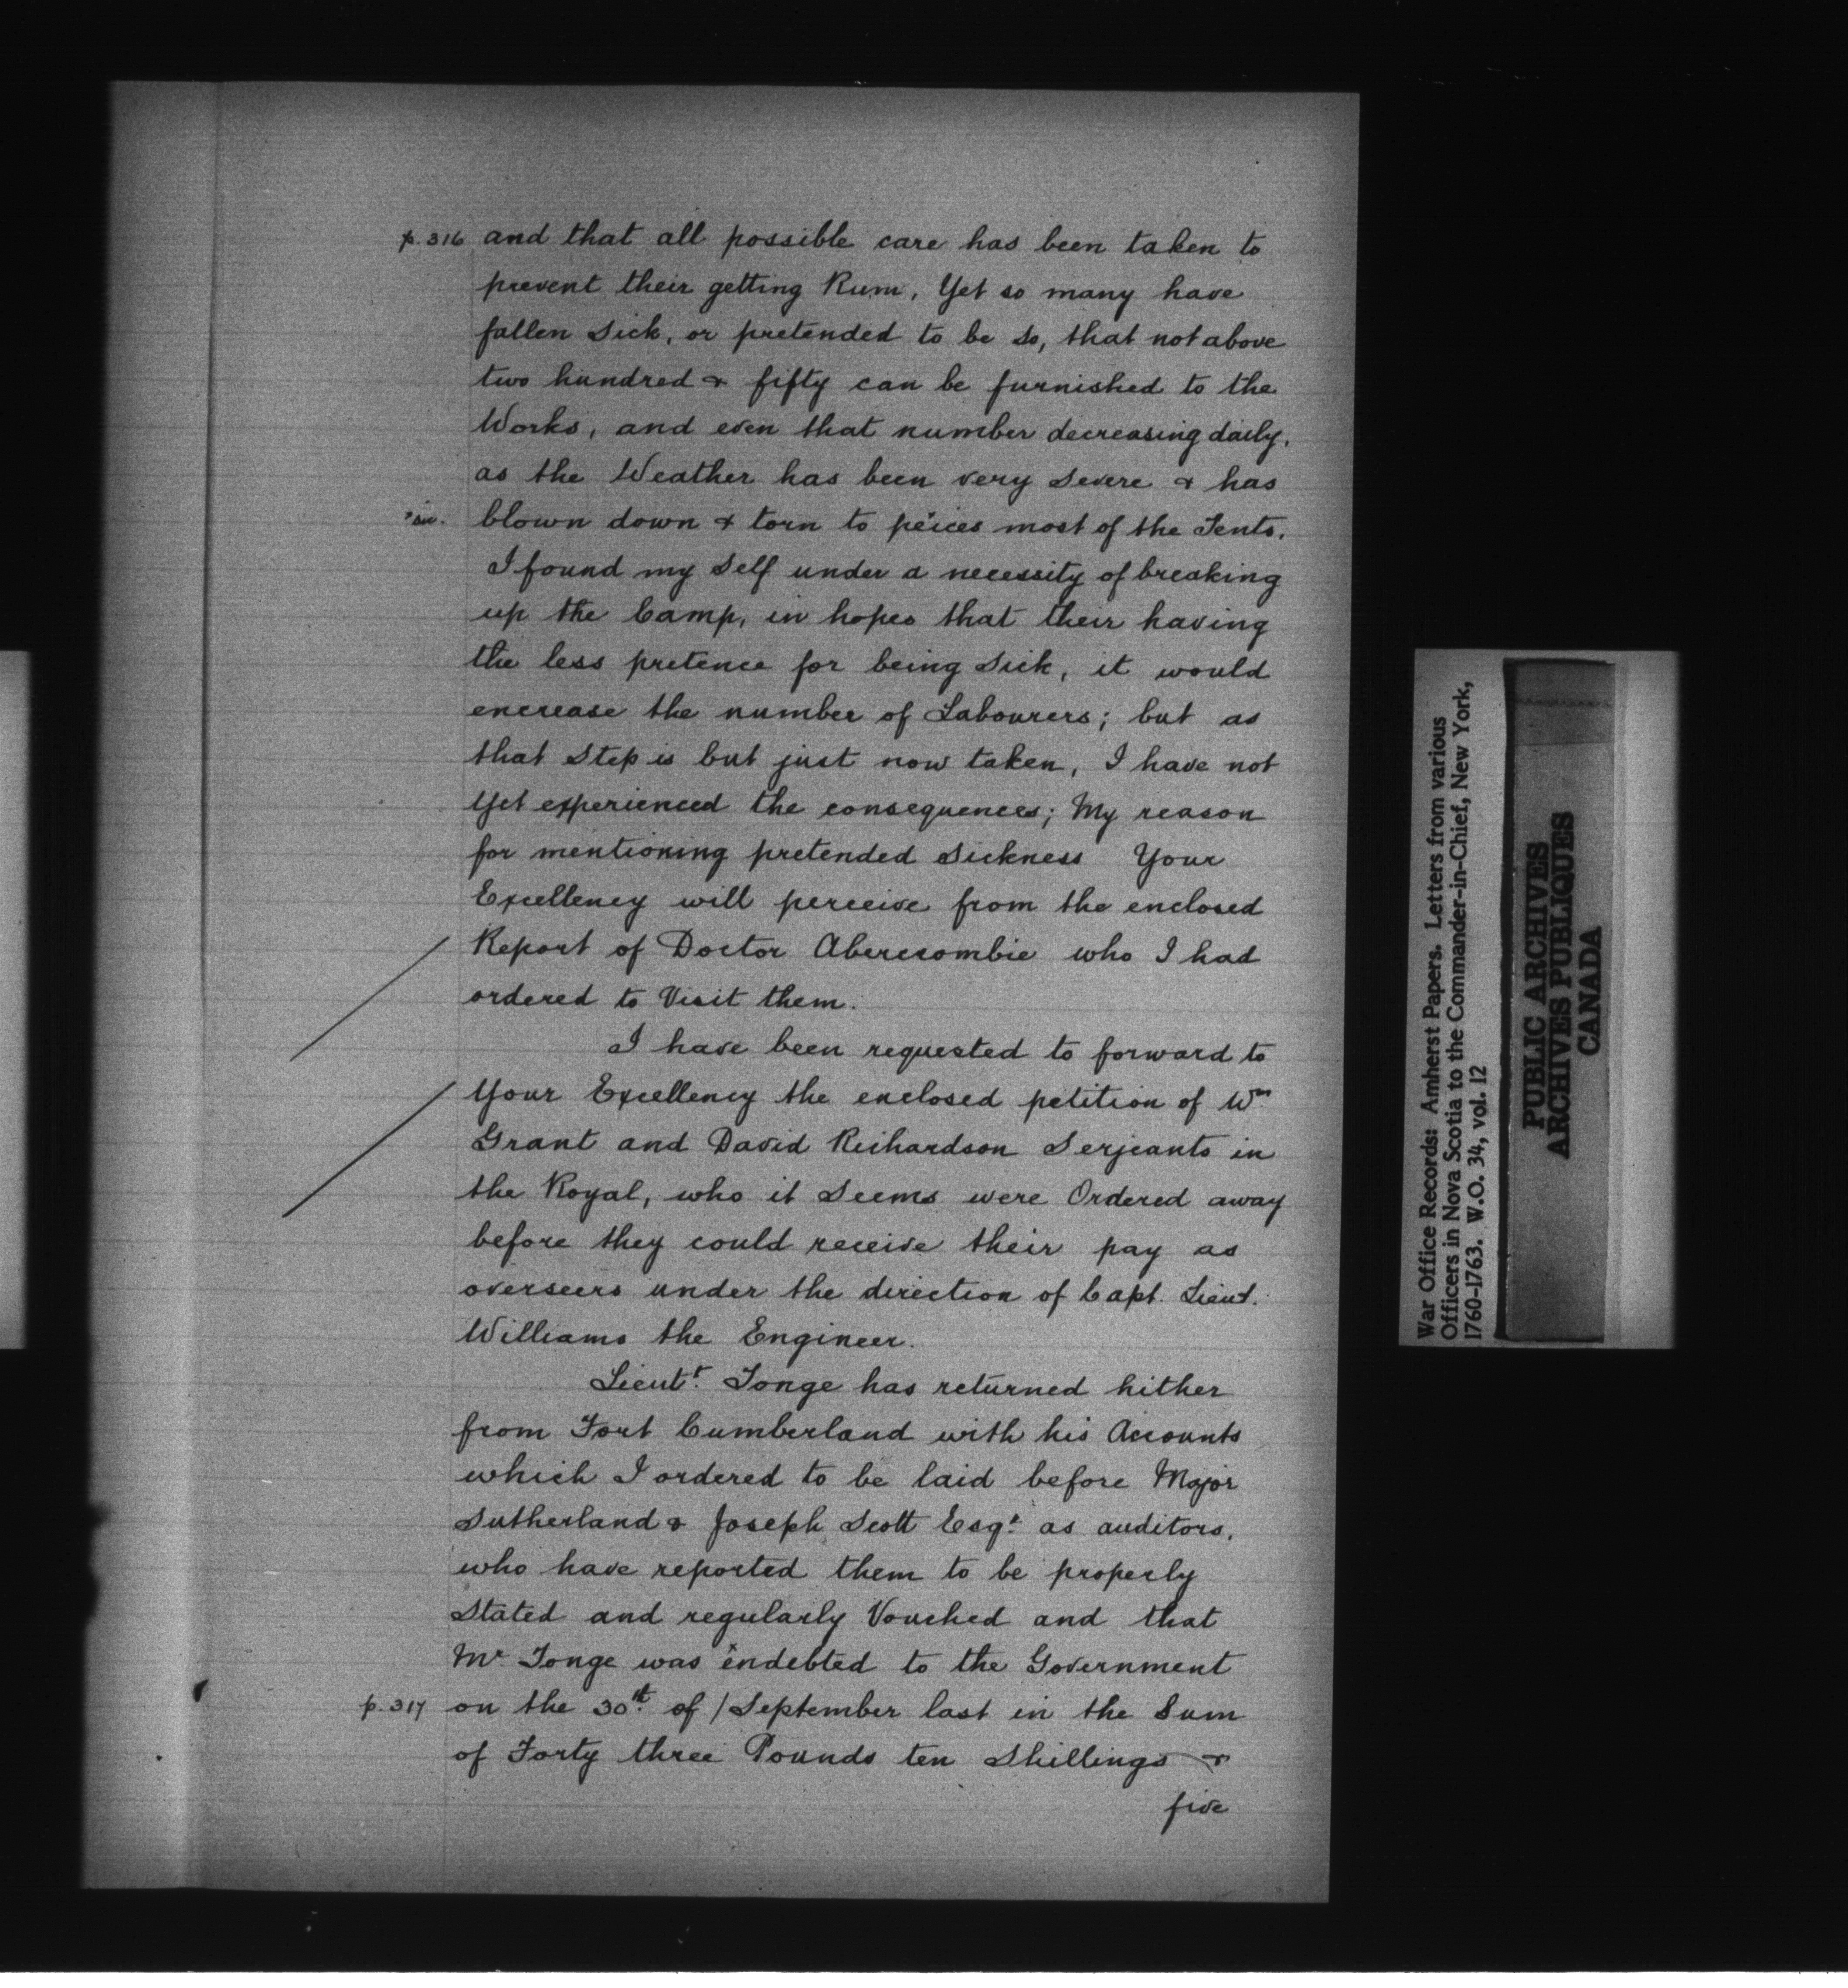 p. 316 and that all possible care has been taken to
prevent their getting Rum, Yet so many have
fallen Sick, or pretended to be So, that not above
two hundred & fifty can be furnished to the
Works, and even that number decreasing daily,
as the Weather has been very Severe & has
*sic. blown down & torn to peices most of the Tents.
I found my Self under a necessity of breaking
up the Camp, in hopes that their having
the less pretence for being Sick, it would
encrease the number of Labourers; but as
that Step is but just now taken, I have not
Yet experienced the consequences; My reason
for mentioning pretended Sickness Your
Excellency will perceive from the enclosed
Report of Doctor Abercrombie who I had
ordered to Visit them.
I have been requested to forward to
Your Excellency the enclosed petition of Wm
Grant and David Richardson Serjeants in
the Royal, who it Seems were Ordered away
before they could receive their pay as
overseers under the direction of Capt. Lieut.
Williams the Engineer.
Lieutt. Tonge has returned hither
from Fort Cumberland with his Accounts
which I ordered to be laid before Major
Sutherland & Joseph Scott Esqr. as auditors,
who have reported them to be properly
Stated and regularly Vouched and that
Mr. Tonge was endebted to the Government
p. 317 on the 30th. of / September last in the Sum
of Forty three Pounds ten Shillings &
five
War Office Records: Amherst Papers. Letters from various
Officers in Nova Scotia to the Commander-in-Chief, New York,
1760-1763. W.O. 34, vol. 12
PUBLIC ARCHIVES
ARCHIVES PUBLIQUES
CANADA